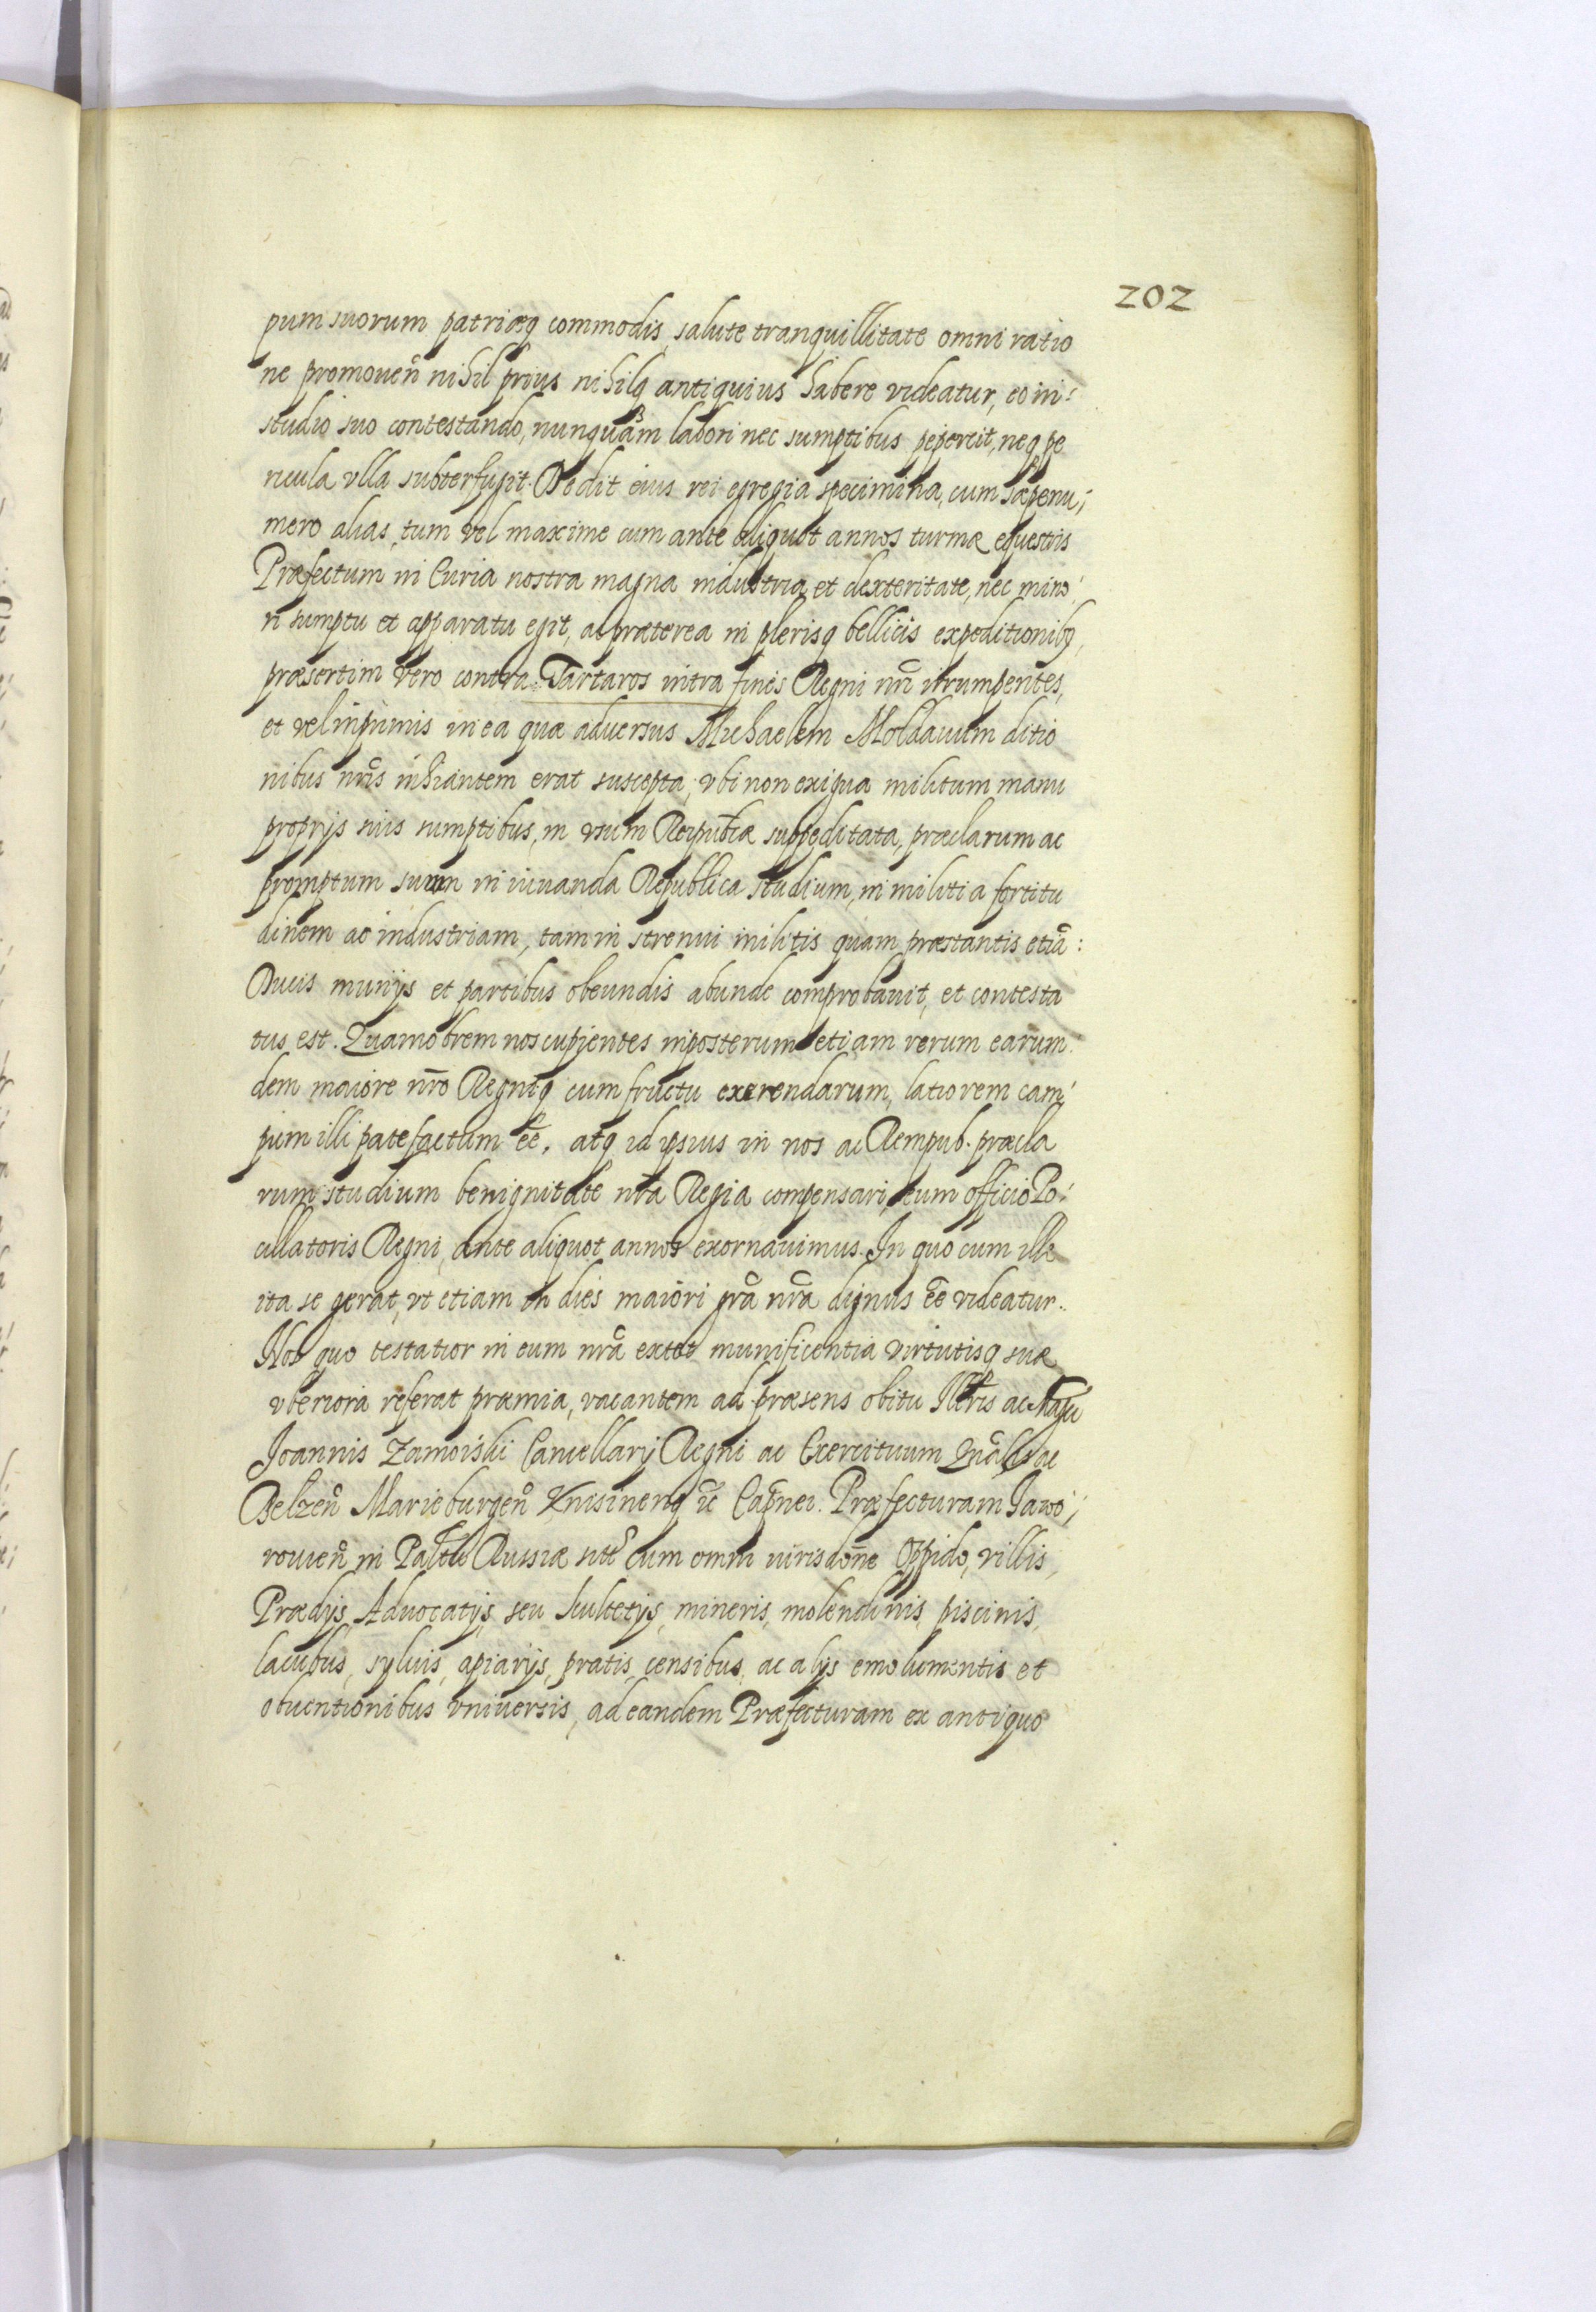 202
pum suorum patriæq commodis, salute tranquillitate omni ratio
ne promouen̄ nihil prius nihilq antiquius habere videatur, eo in:
studio suo contestando, nunquam labori nec sumptibus pepercit, neq pe
ricula vlla subterfugit. Dedit eius rei egregia specimina, cum sæpenu;
mero alias, tum vel maxime cum ante aliquot annos turmæ equestris
Præfectum in Curia nostra magna industria et dexteritate, nec mino
ri sumptu et apparatu egit, ac præterea in plerisq bellicis expeditionibq,
præsertim vero contra Tartaros intra fines Regni nr̄i irrumpentes,
et vel inprimis in ea quæ aduersus Michaelem Moldauum ditio
nibus nr̄is inhiantem erat suscepta; vbi non exigua militum manu
proprijs suis sumptibus, in vsum Reipub̄cæ suppeditata, præclarum ac
promptum suum in iuuanda Republica studium, in militia fortitu
dinem ac industriam, tam in strenui militis quam præstantis etiā:
Ducis munijs et partibus obeundis abunde comprobauit, et contesta
tus est. Quamobrem nos cupientes inposterum etiam verum earum
dem maiore nr̄o Regniq cum fructu exerendarum, latiorem cam
pum illi patefactum eē, atq id ipsius in nos ac Rempub. præcla
rum studium benignitate nr̄a Regia compensari, eum officio Po:
cillatoris Regni, ante aliquot annos exornauimus. In quo cum ille
ita se gerat, vt etiam in dies maiori gr̄a nr̄a dignus eē videatur.
Nos quo testatior in eum nr̄a extet munificentia virtutisq suæ
vberiora referat præmia, vacantem ad præsens obitu Illtris ac Magci
Joannis Zamoiski Cancellarij Regni ac Exercituum Gn̄alis ac
Belzen̄ Marieburgen̄ Knisinenq ec̄ Capnei. Præfecturam Jawo;
rouien̄ in Paltu Russiæ sit̄ cum omni iurisdon̄e Oppido, villis,
Prædijs, Aduocatijs, seu Scultetijs, mineris, molendinis, piscinis,
lacubus, syluis, apiarijs, pratis, censibus, ac alijs emolumentis et
obuentionibus vniuersis, ad eandem Præfecturam ex antiquo